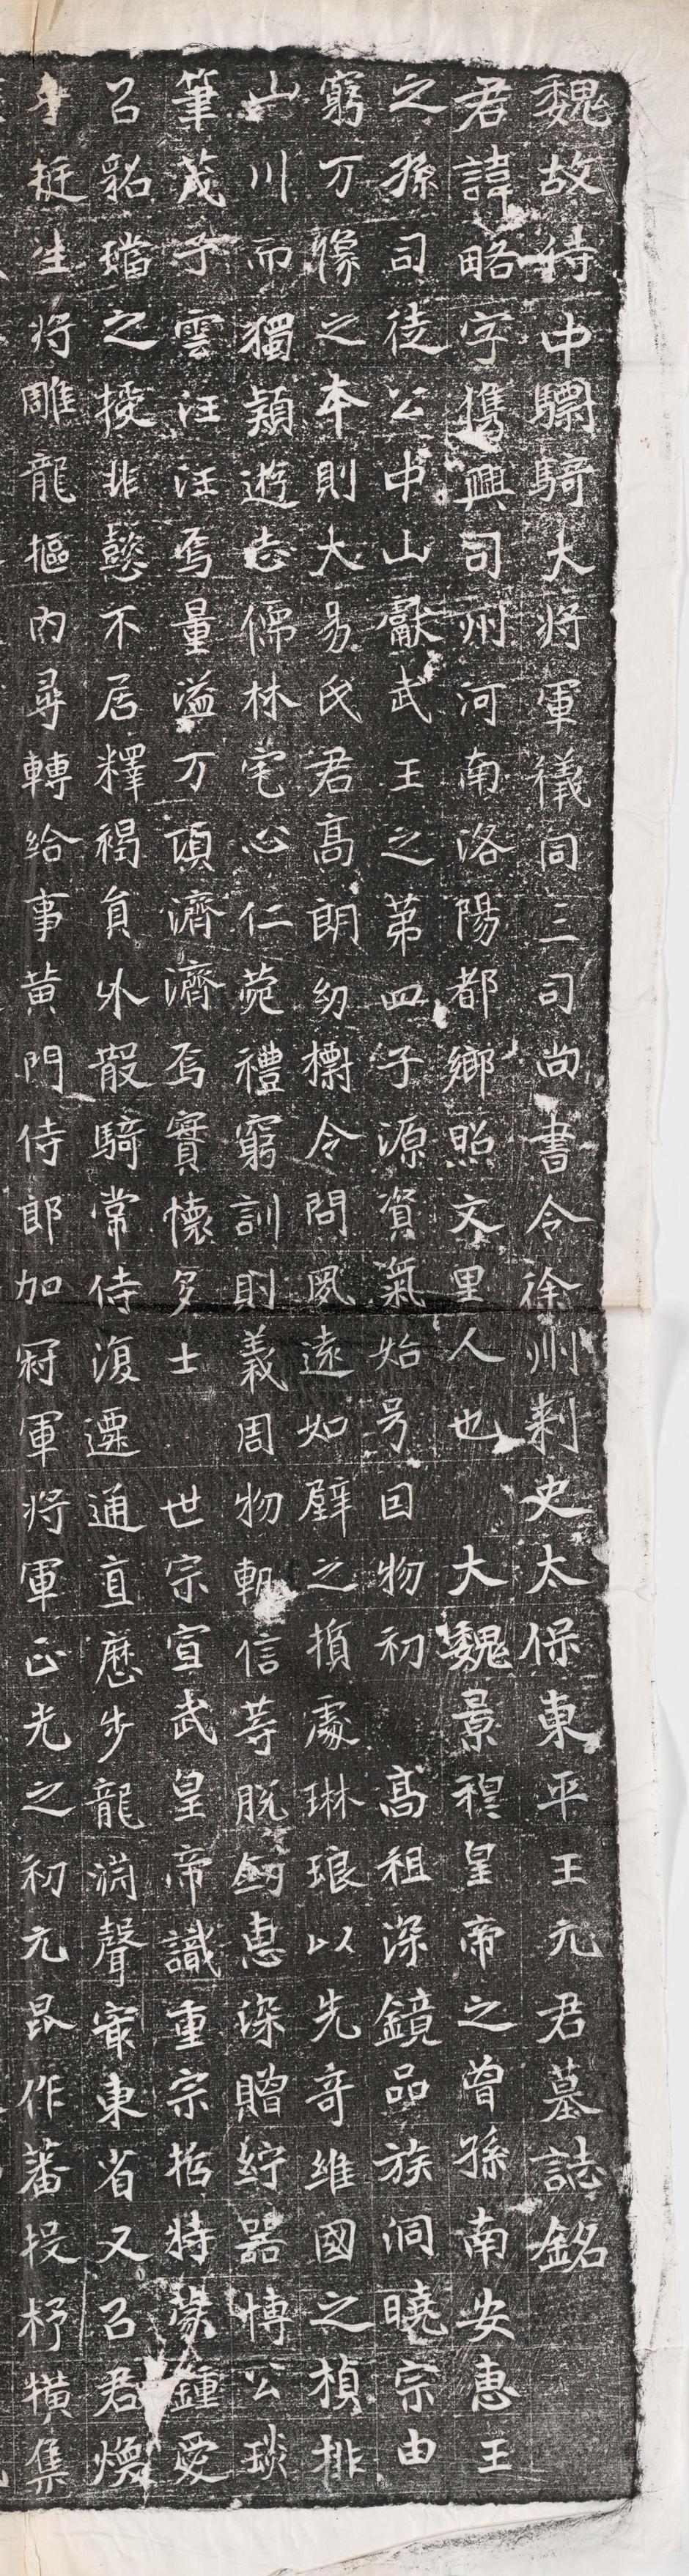 魏故侍中驃騎大將軍儀同三司尚書令徐州刺史太保東平王元君墓誌銘
君諱略字儁興司州河南洛陽都鄉照文里人也　大魏景穆皇帝之曾孫南安惠王
之孫司徒公中山獻武王之第四子源資氣始号回物初　髙祖深鏡品族洞曉宗由
窮万㒖之本則大易氏君髙朗幼摽令問夙遠如璧之損處琳琅以先奇維國之楨排
山川而獨頴遊志儒林宅心仁菀禮窮訓則義周物軌信等脫劒惠深贈紵器博公琰
筆茂子雲汪汪焉量溢万頃濟濟焉實懷多士　世宗宣武皇帝識重宗哲特蒙鍾愛
召貂璫之授非懿不居釋褐負外散騎常侍復遷通直歷步龍渊聲寂東省又召君煥
挺生將雕龍樞內尋轉給事黄門侍郎加冠軍將軍正光之初元昆作蕃投杼横集